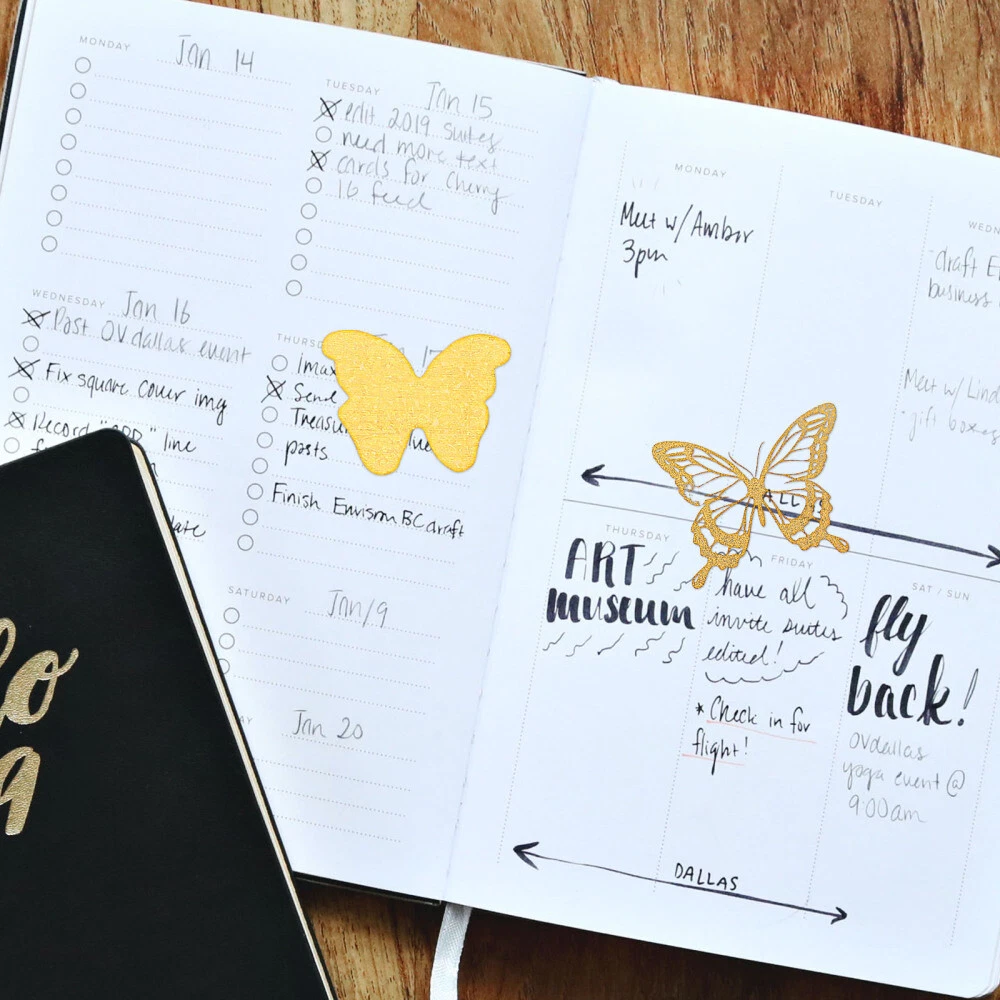 MONDAY
Jan 14
TUESDAY
Jan 15
edit 2019 suites
need more text
cards for cherry
IG feed
WEDNESDAY
Jan 16
Post OVdallas event
Fix square cover img
Record " " line
THURSDAY
Jan 17
Imax
Send
posts
Finish Envision BC draft
SATURDAY
Jan 19
Jan 20
MONDAY
Meet w/ Amber
3pm
TUESDAY
draft
business
Meet w/
gift boxes
THURSDAY
ART
museum
FRIDAY
have all
invite suites
edited!
* Check in for
flight!
SAT / SUN
fly
back!
OVdallas
yoga event @
9:00am
DALLAS